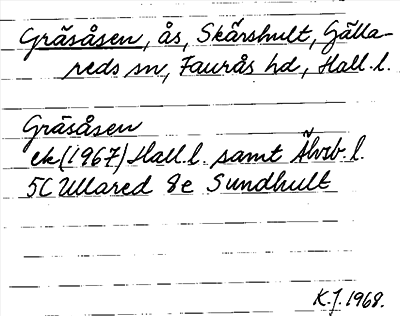 Gräsåsen, ås, Skärshult, Gälla-
reds sn, Faurås hd, Hall. l.
Gräsåsen
ek (1967) Hall. l. samt Älvsb. l.
5C Ullared 8e Sundhult
K.J. 1968.